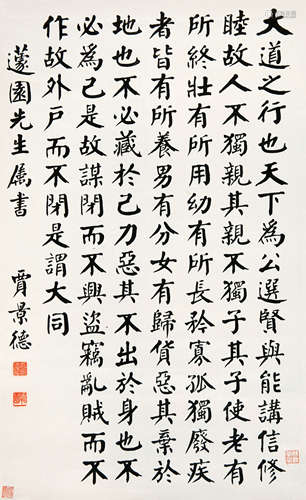 大道之行也天下為公選賢與能講信修
睦故人不獨親其親不獨子其子使老有
所終壯有所用幼有所長矜寡孤獨廢疾
者皆有所養男有分女有歸貨惡其棄於
地也不必藏於己力惡其不出於身也不
必為己是故謀閉而不興盜竊亂賊而不
作故外戶而不閉是謂大同
蘧園先生属書
賈景德